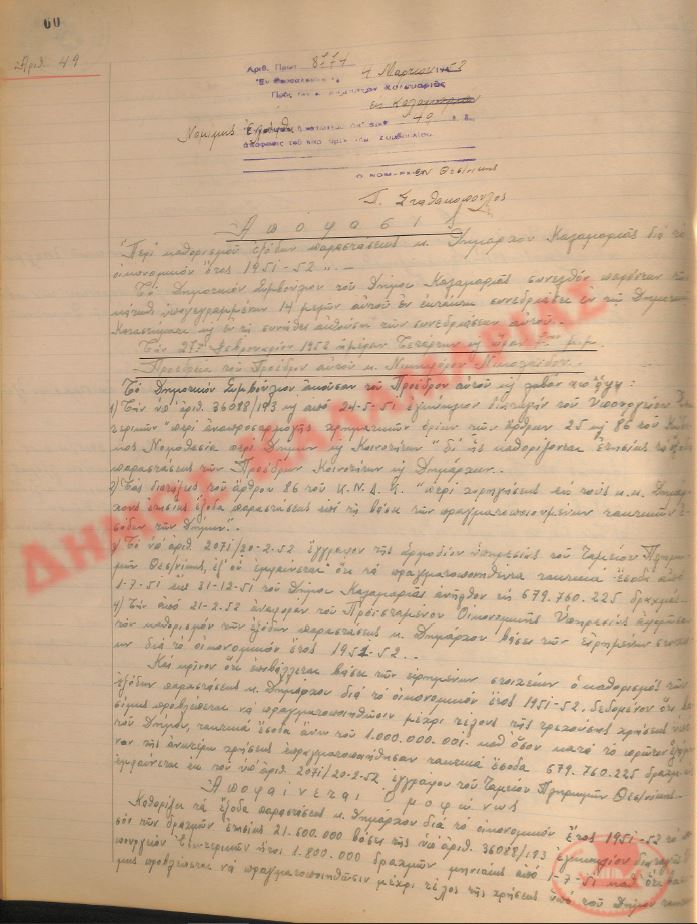 60
Ἀριθ. 49
Ἀριθ. Πρωτ. 8771
Ἐν Θεσσαλονίκῃ τῇ 4 Μαρτίου 1952
Πρὸς τὸν κ. Δήμαρχον Καλαμαριᾶς
ἐν Καλαμαριᾷ
Νομίμως 49
ἀπόφασις τοῦ Συμβουλίου.
Ο ΝΟΜΑΡΧΗΣ Θεσ/νίκης
Π. Σταθακόπουλος
Ἀπόφασις
"Περὶ καθορισμοῦ ἐξόδων παραστάσεως κ. Δημάρχου Καλαμαριᾶς διὰ τὸ
οἰκονομικὸν ἔτος 1951-52".-
Τὸ Δημοτικὸν Συμβούλιον τοῦ Δήμου Καλαμαριᾶς συνελθὸν παρόντων τῶν
ὑπογεγραμμένων 14 μελῶν αὐτοῦ ἐν ἐκτάκτῳ συνεδριάσει ἐν τῷ Δημοτικῷ
Καταστήματι καὶ ἐν τῇ συνήθει αἰθούσῃ τῶν συνεδριάσεων αὐτοῦ.
Τὴν 27ην Φεβρουαρίου 1952 ἡμέραν Τετάρτην καὶ ὥραν 7ην μ.μ.
Προεδρίᾳ τοῦ Προέδρου αὐτοῦ κ. Νικηφόρου Νικολαΐδου.
Τὸ Δημοτικὸν Συμβούλιον ἀκοῦσαν τοῦ Προέδρου αὐτοῦ καὶ λαβὸν ὑπ' ὄψη:
1) Τὴν ὑπ' ἀριθ. 36088/193 καὶ ἀπὸ 24-5-51 ἐγκύκλιον διαταγὴν τοῦ Ὑπουργείου Ἐσω-
τερικῶν "περὶ ἀναπροσαρμογῆς χρηματικῶν ὁρίων τῶν ἄρθρων 25 καὶ 86 τοῦ
Νομοθεσία περὶ Δήμων καὶ Κοινοτήτων" δι' ἧς καθορίζονται ἐτησίως τὰ ἔξοδα
παραστάσεως τῶν Προέδρων Κοινοτήτων καὶ Δημάρχων.
2) Τὰς διατάξεις τοῦ ἄρθρου 86 τοῦ Κ.Ν.Δ.Κ. "περὶ χορηγήσεως εἰς τοὺς κ.κ. Δημάρ-
χους ἐτησίως ἔξοδα παραστάσεως ἐπὶ τῇ βάσει τῶν πραγματοποιουμένων τακτικῶν ἐ-
σόδων τῶν Δήμων".
3) Τὸ ὑπ' ἀριθ. 2071/20-2-52 ἔγγραφον τῆς ἁρμοδίου ὑπηρεσίας τοῦ Ταμείου Πληρω-
μῶν Θεσ/νίκης, ἐξ οὗ ἐμφαίνεται ὅτι τὰ πραγματοποιηθέντα τακτικὰ ἔσοδα ἀπὸ
1-7-51 ἕως 31-12-51 τοῦ Δήμου Καλαμαριᾶς ἀνῆλθον εἰς 679.760.225 δραχμάς.
4) Τὴν ἀπὸ 21-2-52 ἀναφορὰν τοῦ Προϊσταμένου Οἰκονομικῆς Ὑπηρεσίας ἀφορῶσαν
τὸν καθορισμὸν τῶν ἐξόδων παραστάσεως κ. Δημάρχου βάσει τῶν εἰρημένων στοιχεί-
ων διὰ τὸ οἰκονομικὸν ἔτος 1951-52.
Καὶ κρῖνον ὅτι ἐπιβάλλεται βάσει τῶν εἰρημένων στοιχείων ὁ καθορισμὸς τῶν
ἐξόδων παραστάσεως κ. Δημάρχου διὰ τὸ οἰκονομικὸν ἔτος 1951-52, δεδομένου ὅτι βα-
σίμως προβλέπεται νὰ πραγματοποιηθῶσιν μέχρι τέλους τῆς τρεχούσης χρήσεως ὑπὸ
τοῦ Δήμου, τακτικὰ ἔσοδα ἄνω τοῦ 1.000.000.001. καθ' ὅσον κατὰ τὸ πρῶτον ἑξάμη-
νον τῆς ἀνωτέρω χρήσεως ἐπραγματοποιήθησαν τακτικὰ ἔσοδα 679.760.225 δραχμῶν
ἐμφαίνεται ἐκ τοῦ ὑπ' ἀριθ. 2071/20-2-52 ἐγγράφου τοῦ Ταμείου Πληρωμῶν Θεσ/νίκης.-
Ἀποφαίνεται ὁμοφώνως
Καθορίζει τὰ ἔξοδα παραστάσεως κ. Δημάρχου διὰ τὸ οἰκονομικὸν ἔτος 1951-52 τὸ πο-
σὸν τῶν δραχμῶν ἐτησίως 21.600.000 βάσει τῆς ὑπ' ἀριθ. 36088/193 ἐγκυκλίου διαταγῆς Ὑ-
πουργείου Ἐσωτερικῶν ἤτοι 1.800.000 δραχμῶν μηνιαίως ἀπὸ 1-7-51 καθ' ὅτι βασί-
μως προβλέπεται νὰ πραγματοποιηθῶσιν μέχρι τέλος τῆς χρήσεως ὑπὸ τοῦ Δήμου τακτι-
ΔΗΜΟΣ ΚΑΛΑΜΑΡΙΑΣ